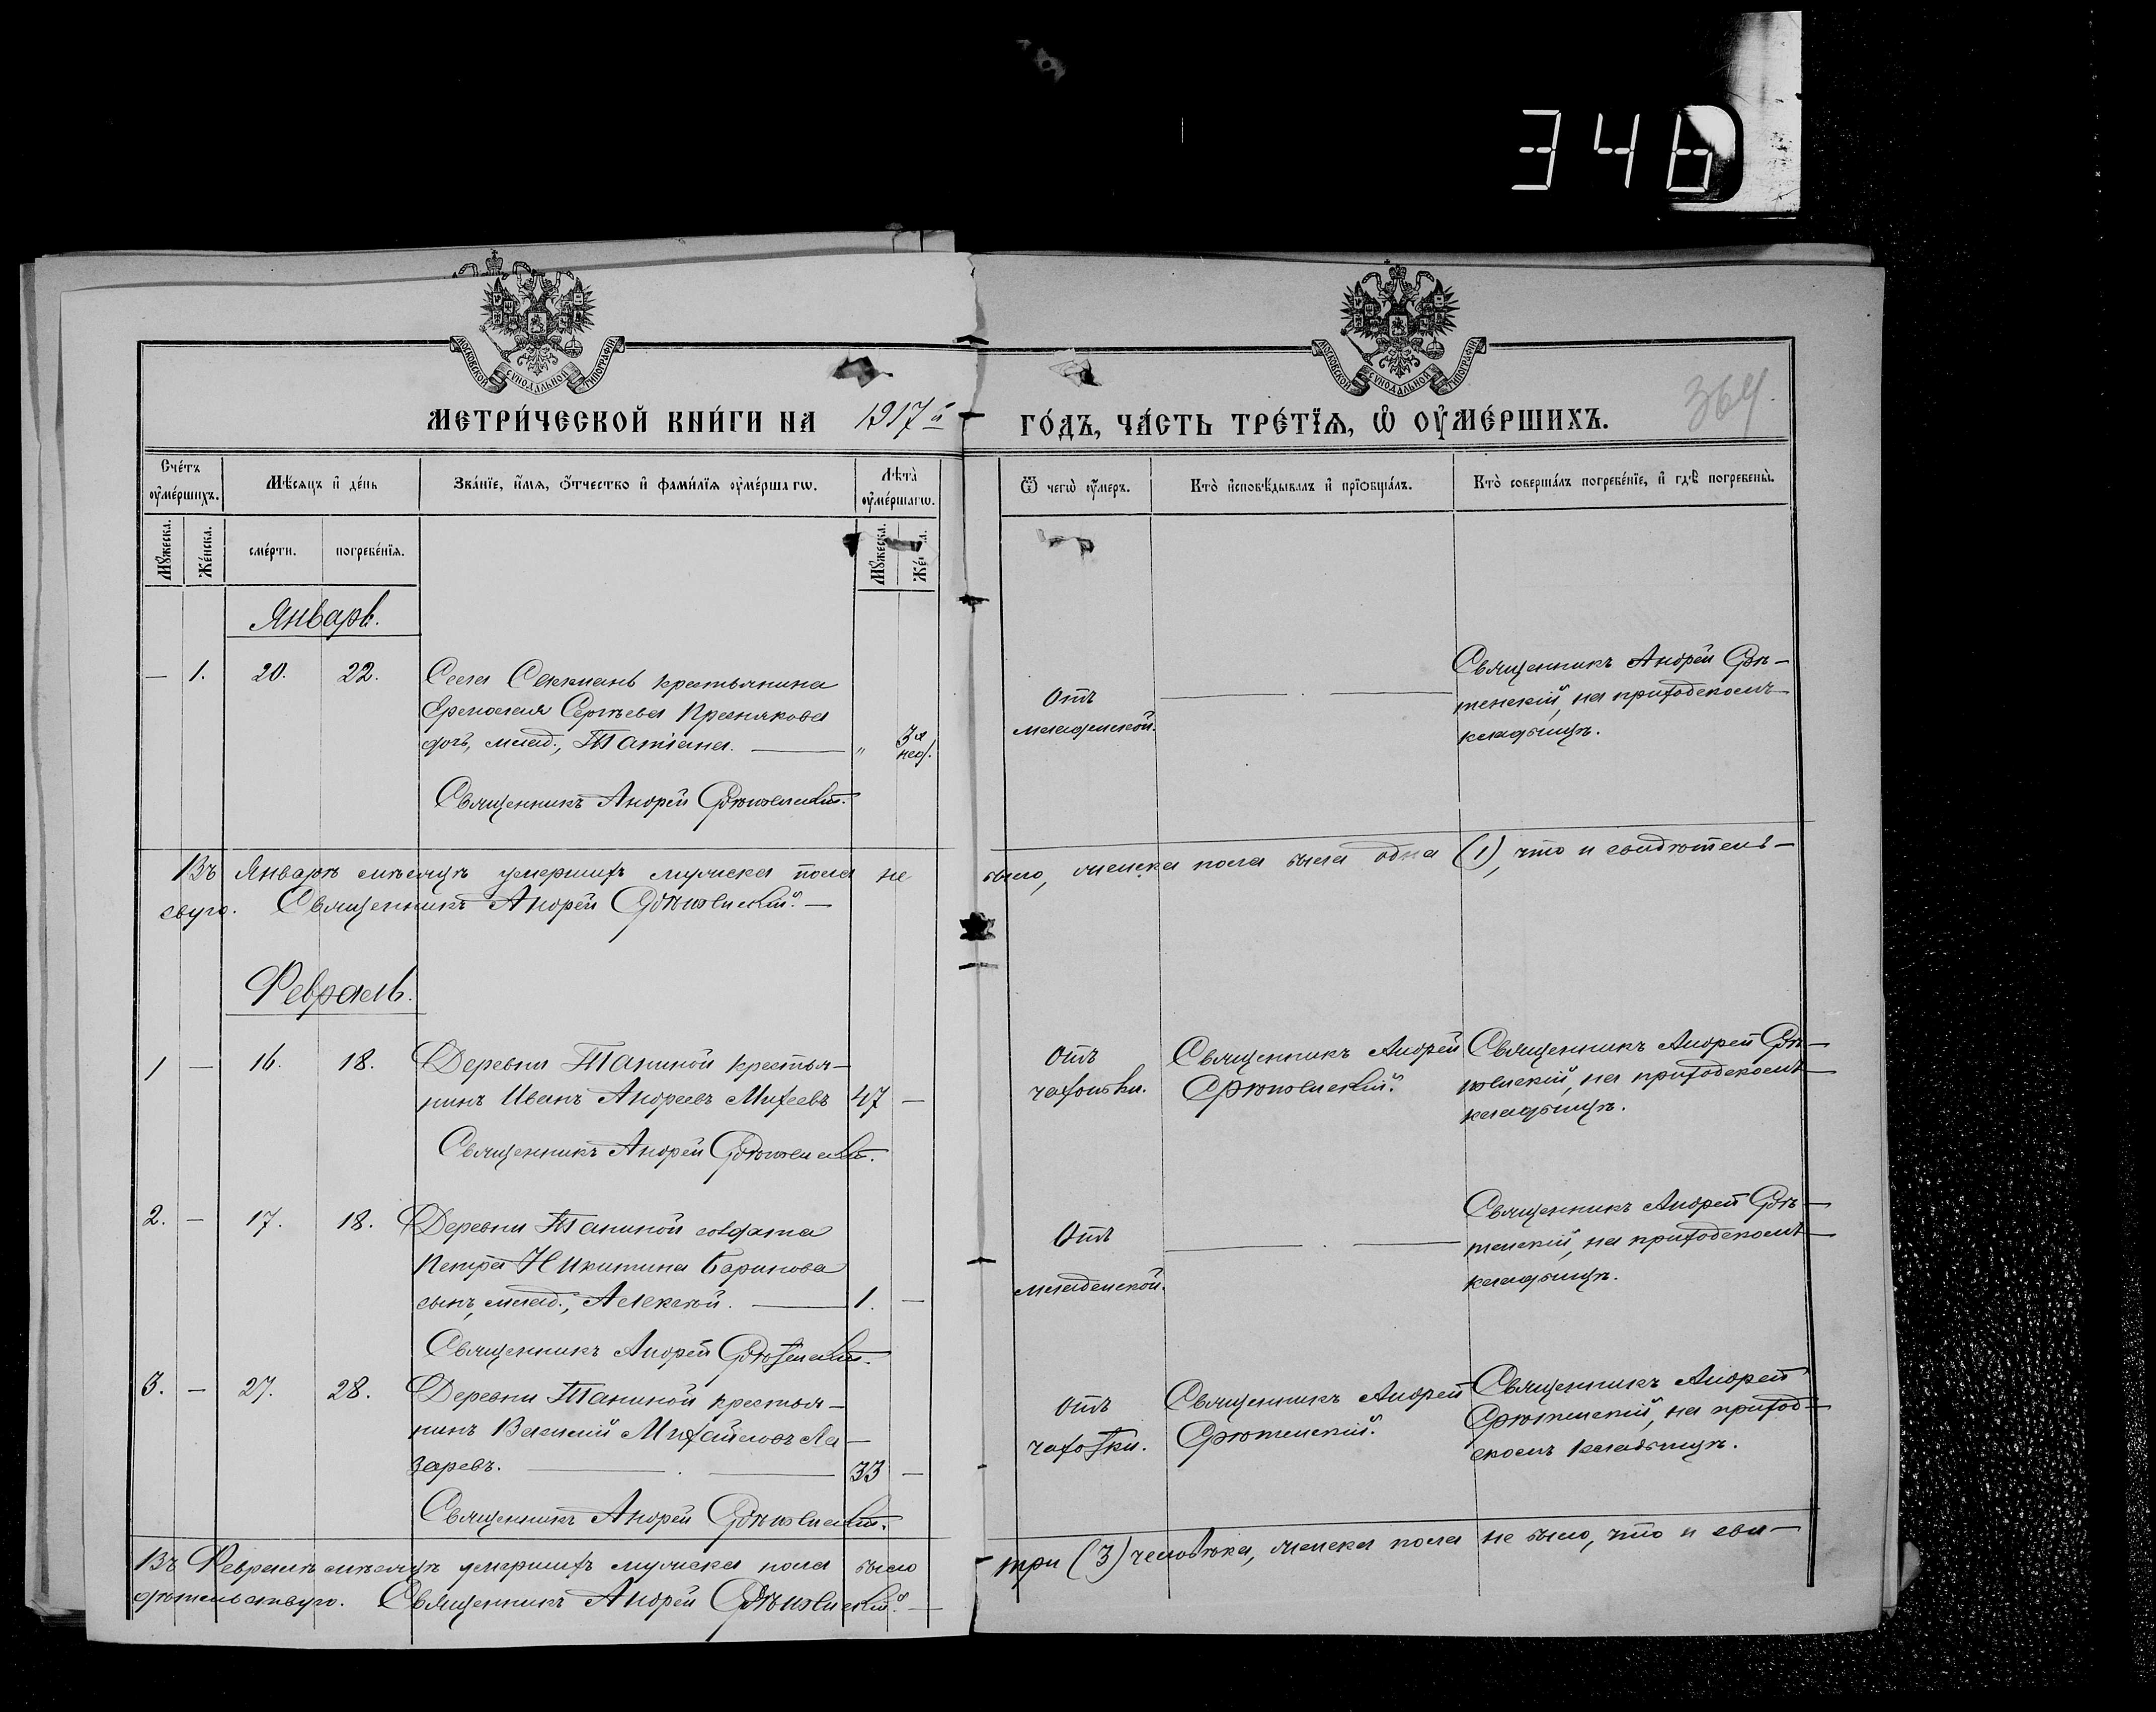 346
МОСКОВСКОЙ СѴНОДАЛЬНОЙ ТИПОГРАФІИ
МОСКОВСКОЙ СѴНОДАЛЬНОЙ ТИПОГРАФІИ
МЕТРИ́ЧЕСКОЙ КНИ́ГИ НА 1917 й ГО́ДЪ, ЧА́СТЬ ТРЕ́ТЇѦ, Ѡ҆ ОУ҆МЕ́РШИХЪ.
364
Сче́тъ оу҆ме́ршихъ.
Мѣ́сѧцъ и҆ де́нь
Зва́нїе, и҆́мѧ, ѻ҆́тчество и҆ фами́лїѧ оу҆ме́ршагѡ.
Лѣ́та оу҆ме́ршагѡ.
Ѿ чегѡ̀ оу҆́меръ.
Кто̀ и҆сповѣ́дывалъ и҆ прїѡбща́лъ.
Кто̀ соверша́лъ погребе́нїе, и҆ гдѣ̀ погребены̀.
Мꙋ́жеска.
Же́нска.
сме́рти.
погребе́нїя.
Мꙋ́жеска.
Январь.
— 1. 20. 22.
крестьянина
Сергѣева Преснякова
доч., млад., Татіана. — „ 3 х нед.
Священникъ Андрей
Отъ
младенской.
Священникъ Андрей
на приходскомъ
кладбищѣ.
Въ Январѣ мѣсяцѣ умершихъ мужска пола не было, женска пола была одна (1), что и свидѣтель-
свую. Священникъ Андрей
Февраль.
1 — 16. 18. Деревни Таниной крестья-
нинъ Иванъ Андреевъ Михеевъ 47 —
Священникъ Андрей
Отъ
чахотки.
Священникъ Андрей
Священникъ Андрей
на приходскомъ
кладбищѣ.
2. — 17. 18. Деревни Таниной солдата
Петра Никитина Баринова
сынъ, млад., Алексѣй. — 1. —
Священникъ Андрей
Отъ
младенской.
Священникъ Андрей
на приходскомъ
кладбищѣ.
3. — 27. 28. Деревни Таниной крестья-
нинъ Василій Михайловъ Ла-
заревъ. — 33 —
Священникъ Андрей
Отъ
чахотки.
Священникъ Андрей
Священникъ Андрей
на приход-
скомъ кладбищѣ.
Въ Февралѣ мѣсяцѣ умершихъ мужска пола было три (3) человѣка, женска пола не было, что и сви-
дѣтельствую. Священникъ Андрей